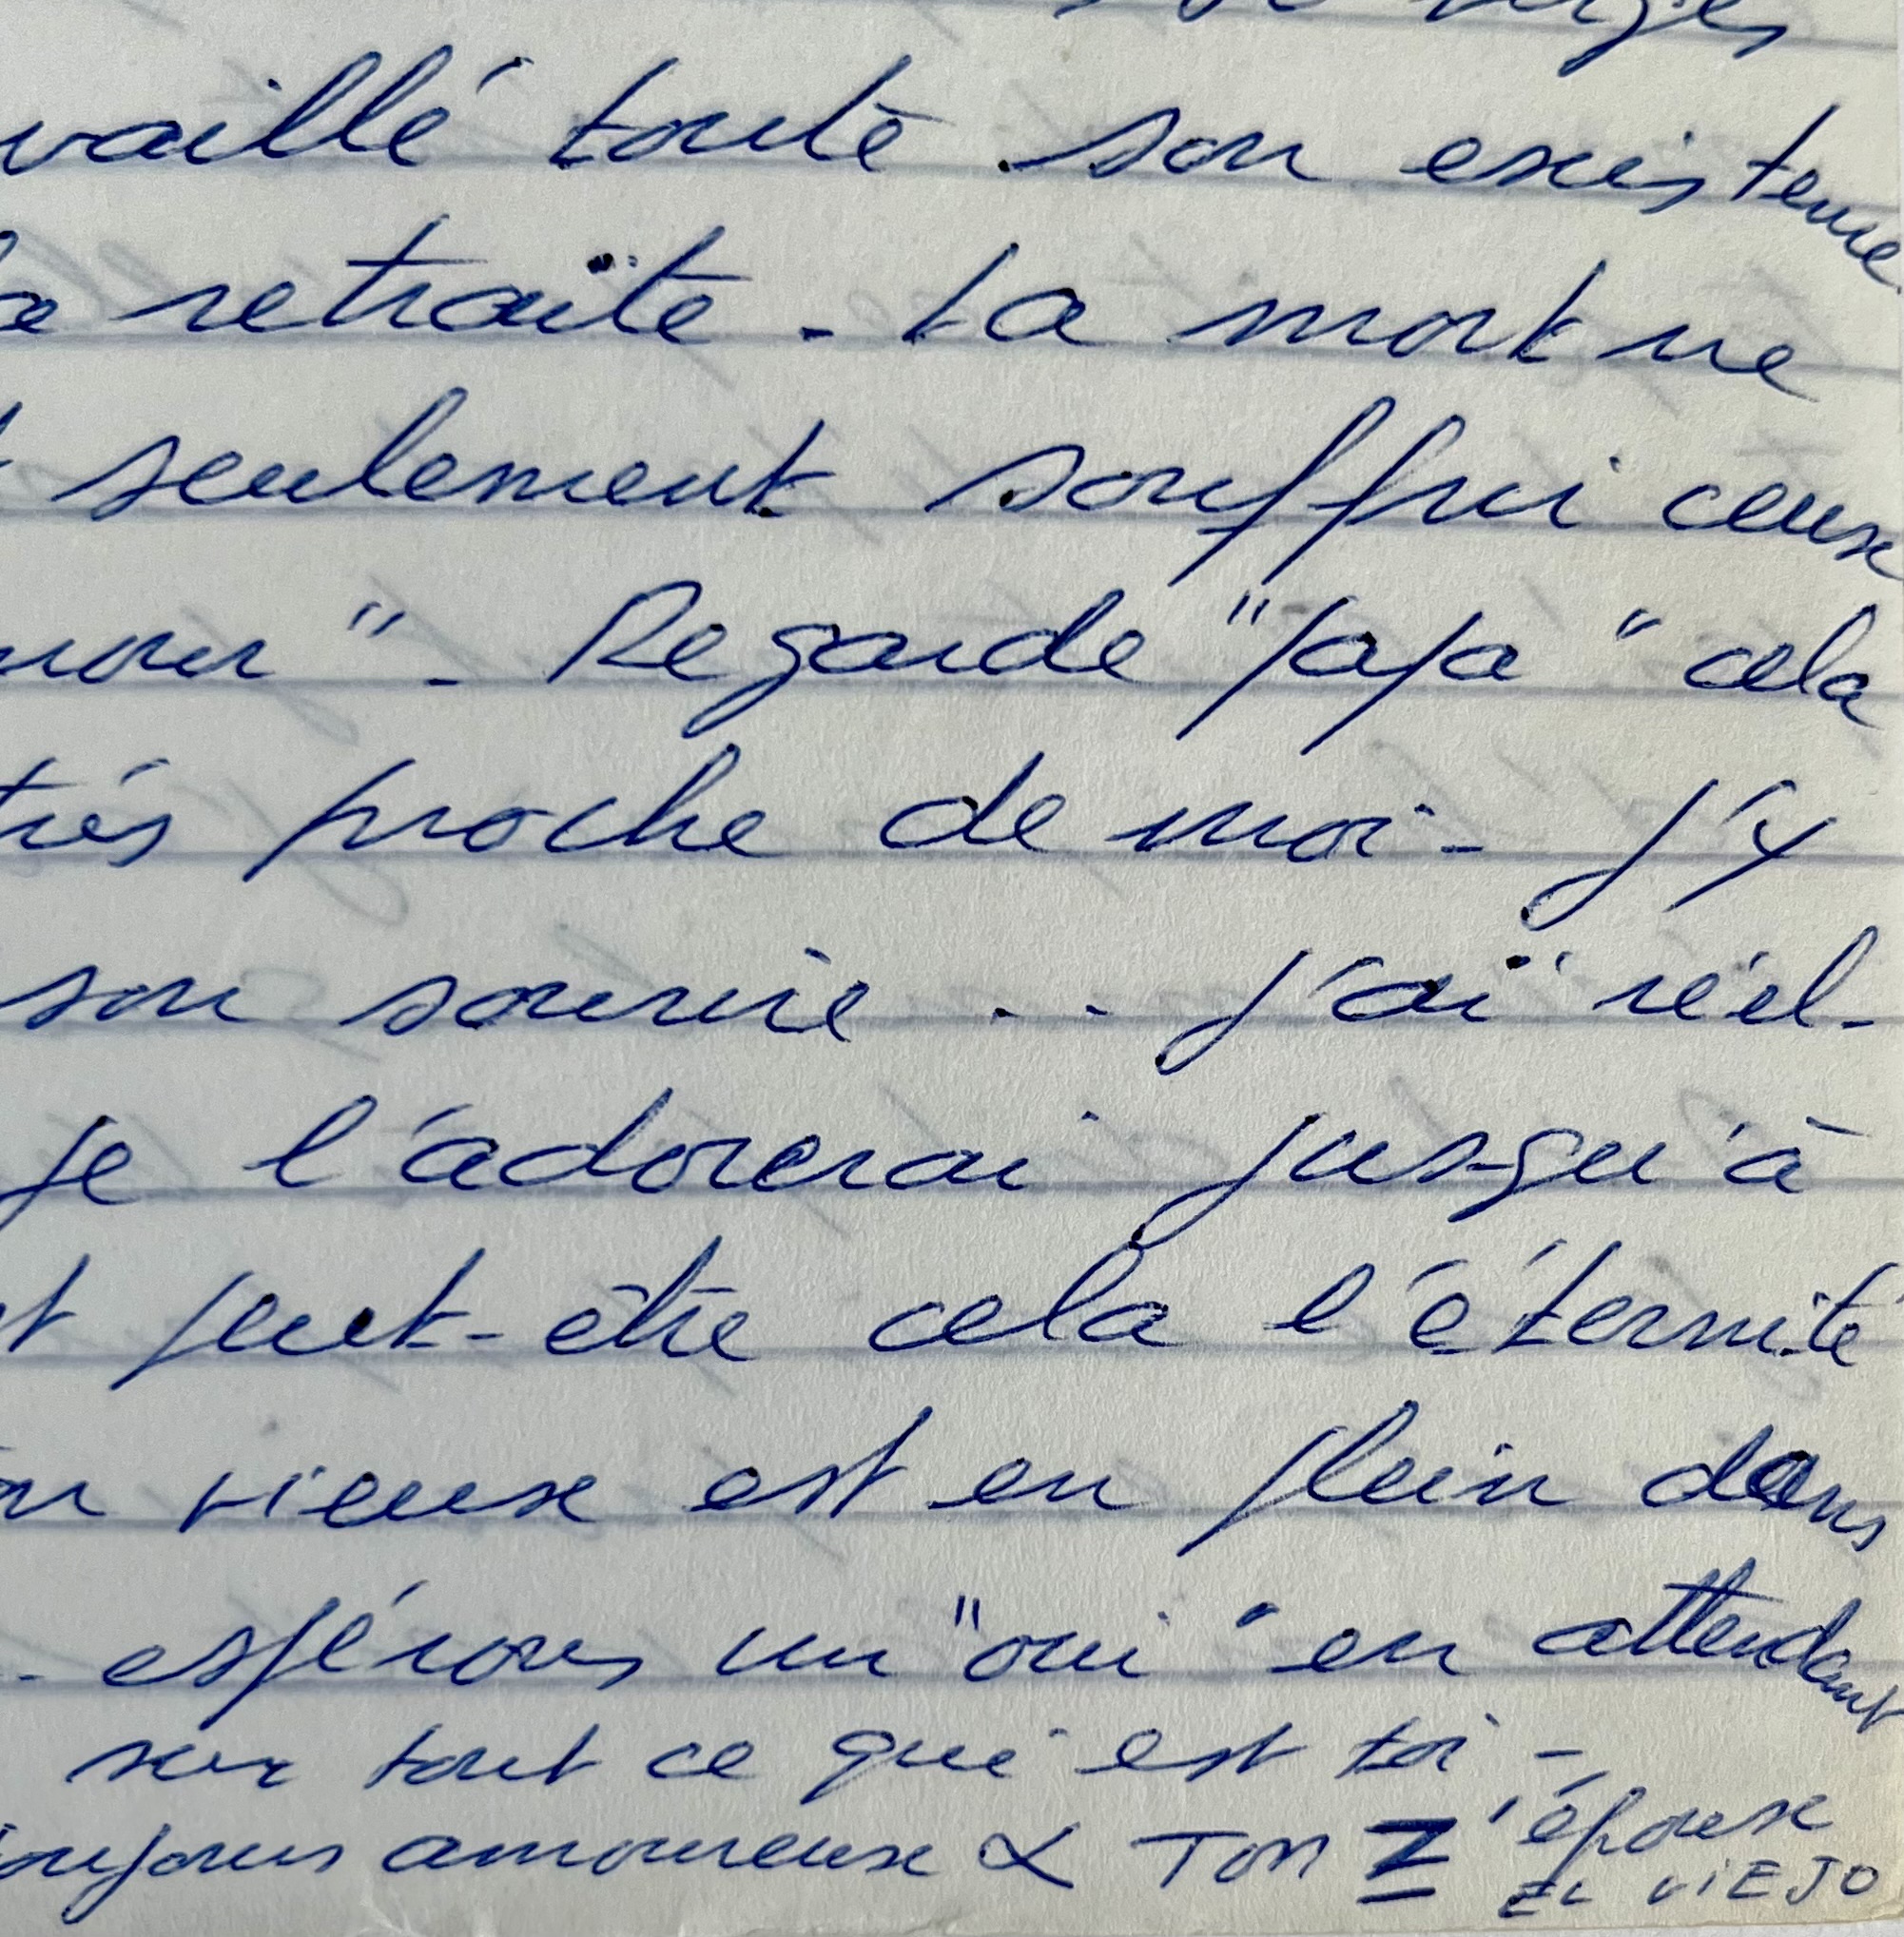 vaillé toute son existence.
a retraite - La mort ne
seulement souffrir ceux
mour" - Regarde "papa" cela
très proche de moi - J'y
son sourire .. J'ai réel-
je l'adorerai jusqu'à
t peut-être cela l'éternité
on vieux est en plein dans
- espérons un "oui" en attendant
sur tout ce qui est toi -
toujours amoureux & TON Z 'époux
EL VIEJO